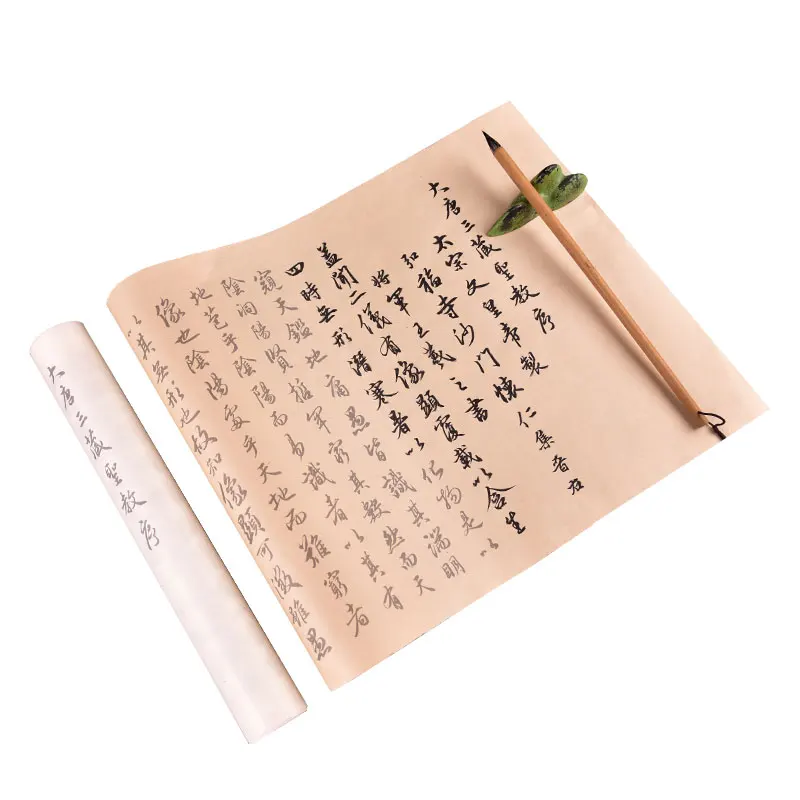 大唐三藏聖教序
太宗文皇帝製
弘福寺沙門懷仁集晉右
將軍王羲之書
蓋聞二儀有像顯覆載以含生
四時無形潛寒暑以化物是以
窺天鑑地庸愚皆識其端明
陰洞陽賢哲罕窮其數然而天
地苞乎陰陽而易識者以其有
像也陰陽處乎天地而難窮者
以其無形也故知像顯可徵雖愚
大唐三藏聖教序